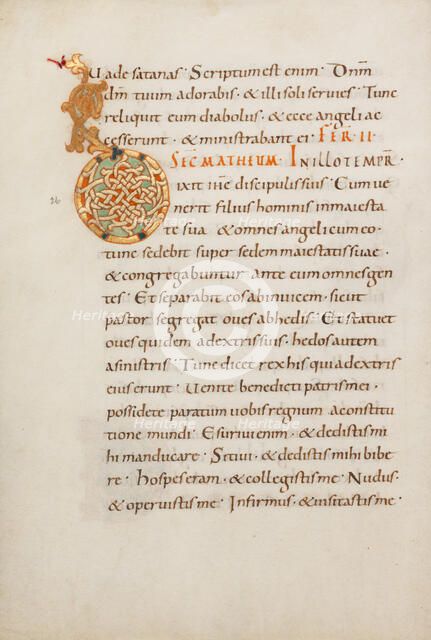 Uade satanas · Scriptum est enim · Dnm̄
dm̄ tuum adorabis · & illi soli seruies · Tunc
reliquit eum diabolus · & ecce angeli ac
cesserunt · & ministrabant ei · FER · II ·
SEC MATHEUM · IN ILLO TEMPR̄ ·
26
Dixit ihc̄ discipulis suis · Cum ue
nerit filius hominis in maiesta
te sua · & omnes angeli cum eo ·
tunc sedebit super sedem maiestatis suae ·
& congregabuntur ante eum omnes gen
tes · Et separabit eos ab inuicem · sicut
pastor segregat oues ab hedis · Et statuet
oues quidem a dextris suis · hedos autem
a sinistris · Tunc dicet rex his qui a dextris
eius erunt · Uenite benedicti patris mei ·
possidete paratum uobis regnum a constitu
tione mundi · Esuriui enim · & dedistis mi
hi manducare · Sitiui · & dedistis mihi bibe
re · Hospes eram · & collegistis me · Nudus ·
& operuistis me · Infirmus · & uisitastis me ·